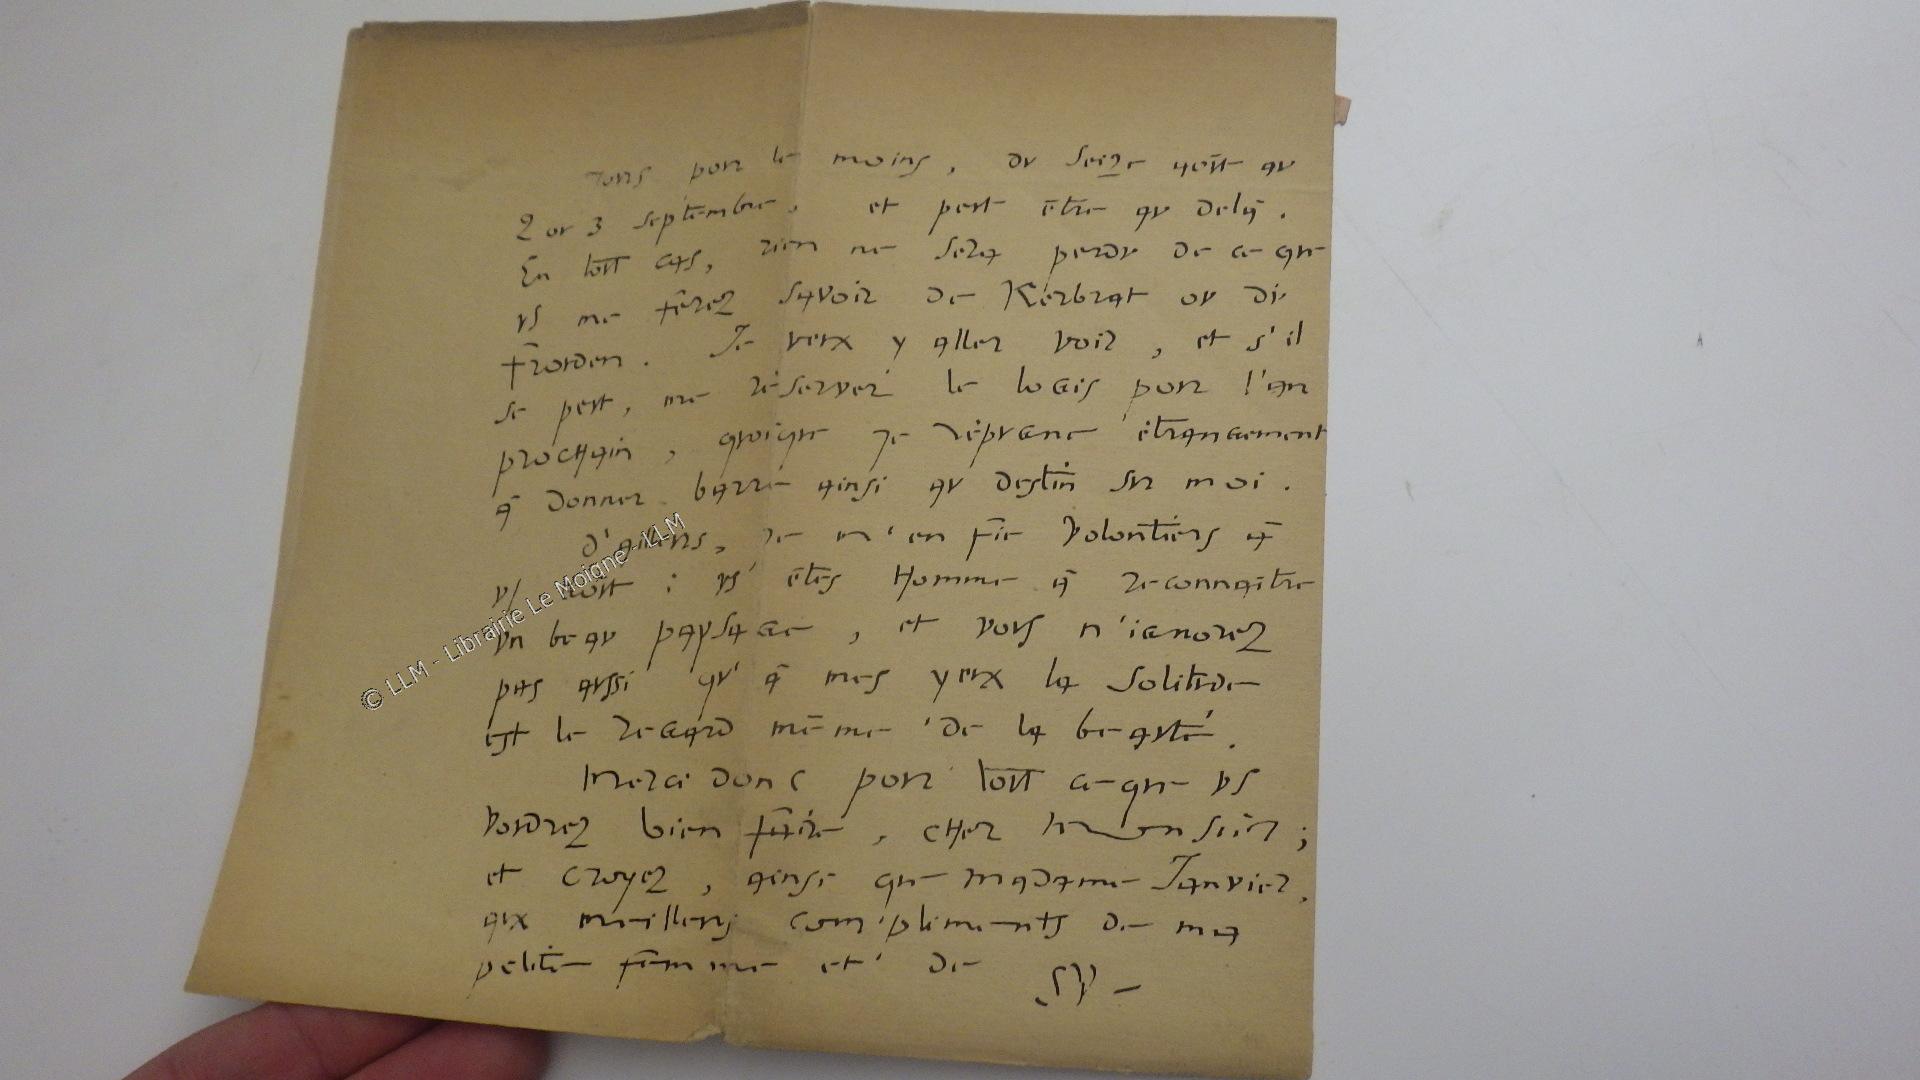 jours pour le moins, du seize août au
2 ou 3 septembre, et peut être au delà.
En tout cas, rien ne sera perdu de ce que
vs me ferez savoir de Kerbrat ou du
Frouden. Je veux y aller voir, et s'il
se peut, me réserver le logis pour l'an
prochain, quoique je répugne étrangement
à donner barre ainsi au destin sur moi.
D'ailleurs, je m'en fie volontiers à
vs êtes homme à reconnaître
un beau paysage, et vous n'ignorez
pas aussi qu'à mes yeux la solitude
est le regard même de la beauté.
Merci donc pour tout ce que vs
voudrez bien faire, cher Monsieur;
et croyez, ainsi que madame Janvier,
aux meilleurs compliments de ma
petite femme et de SY –
© LLM - Librairie Le Moigne - LLM